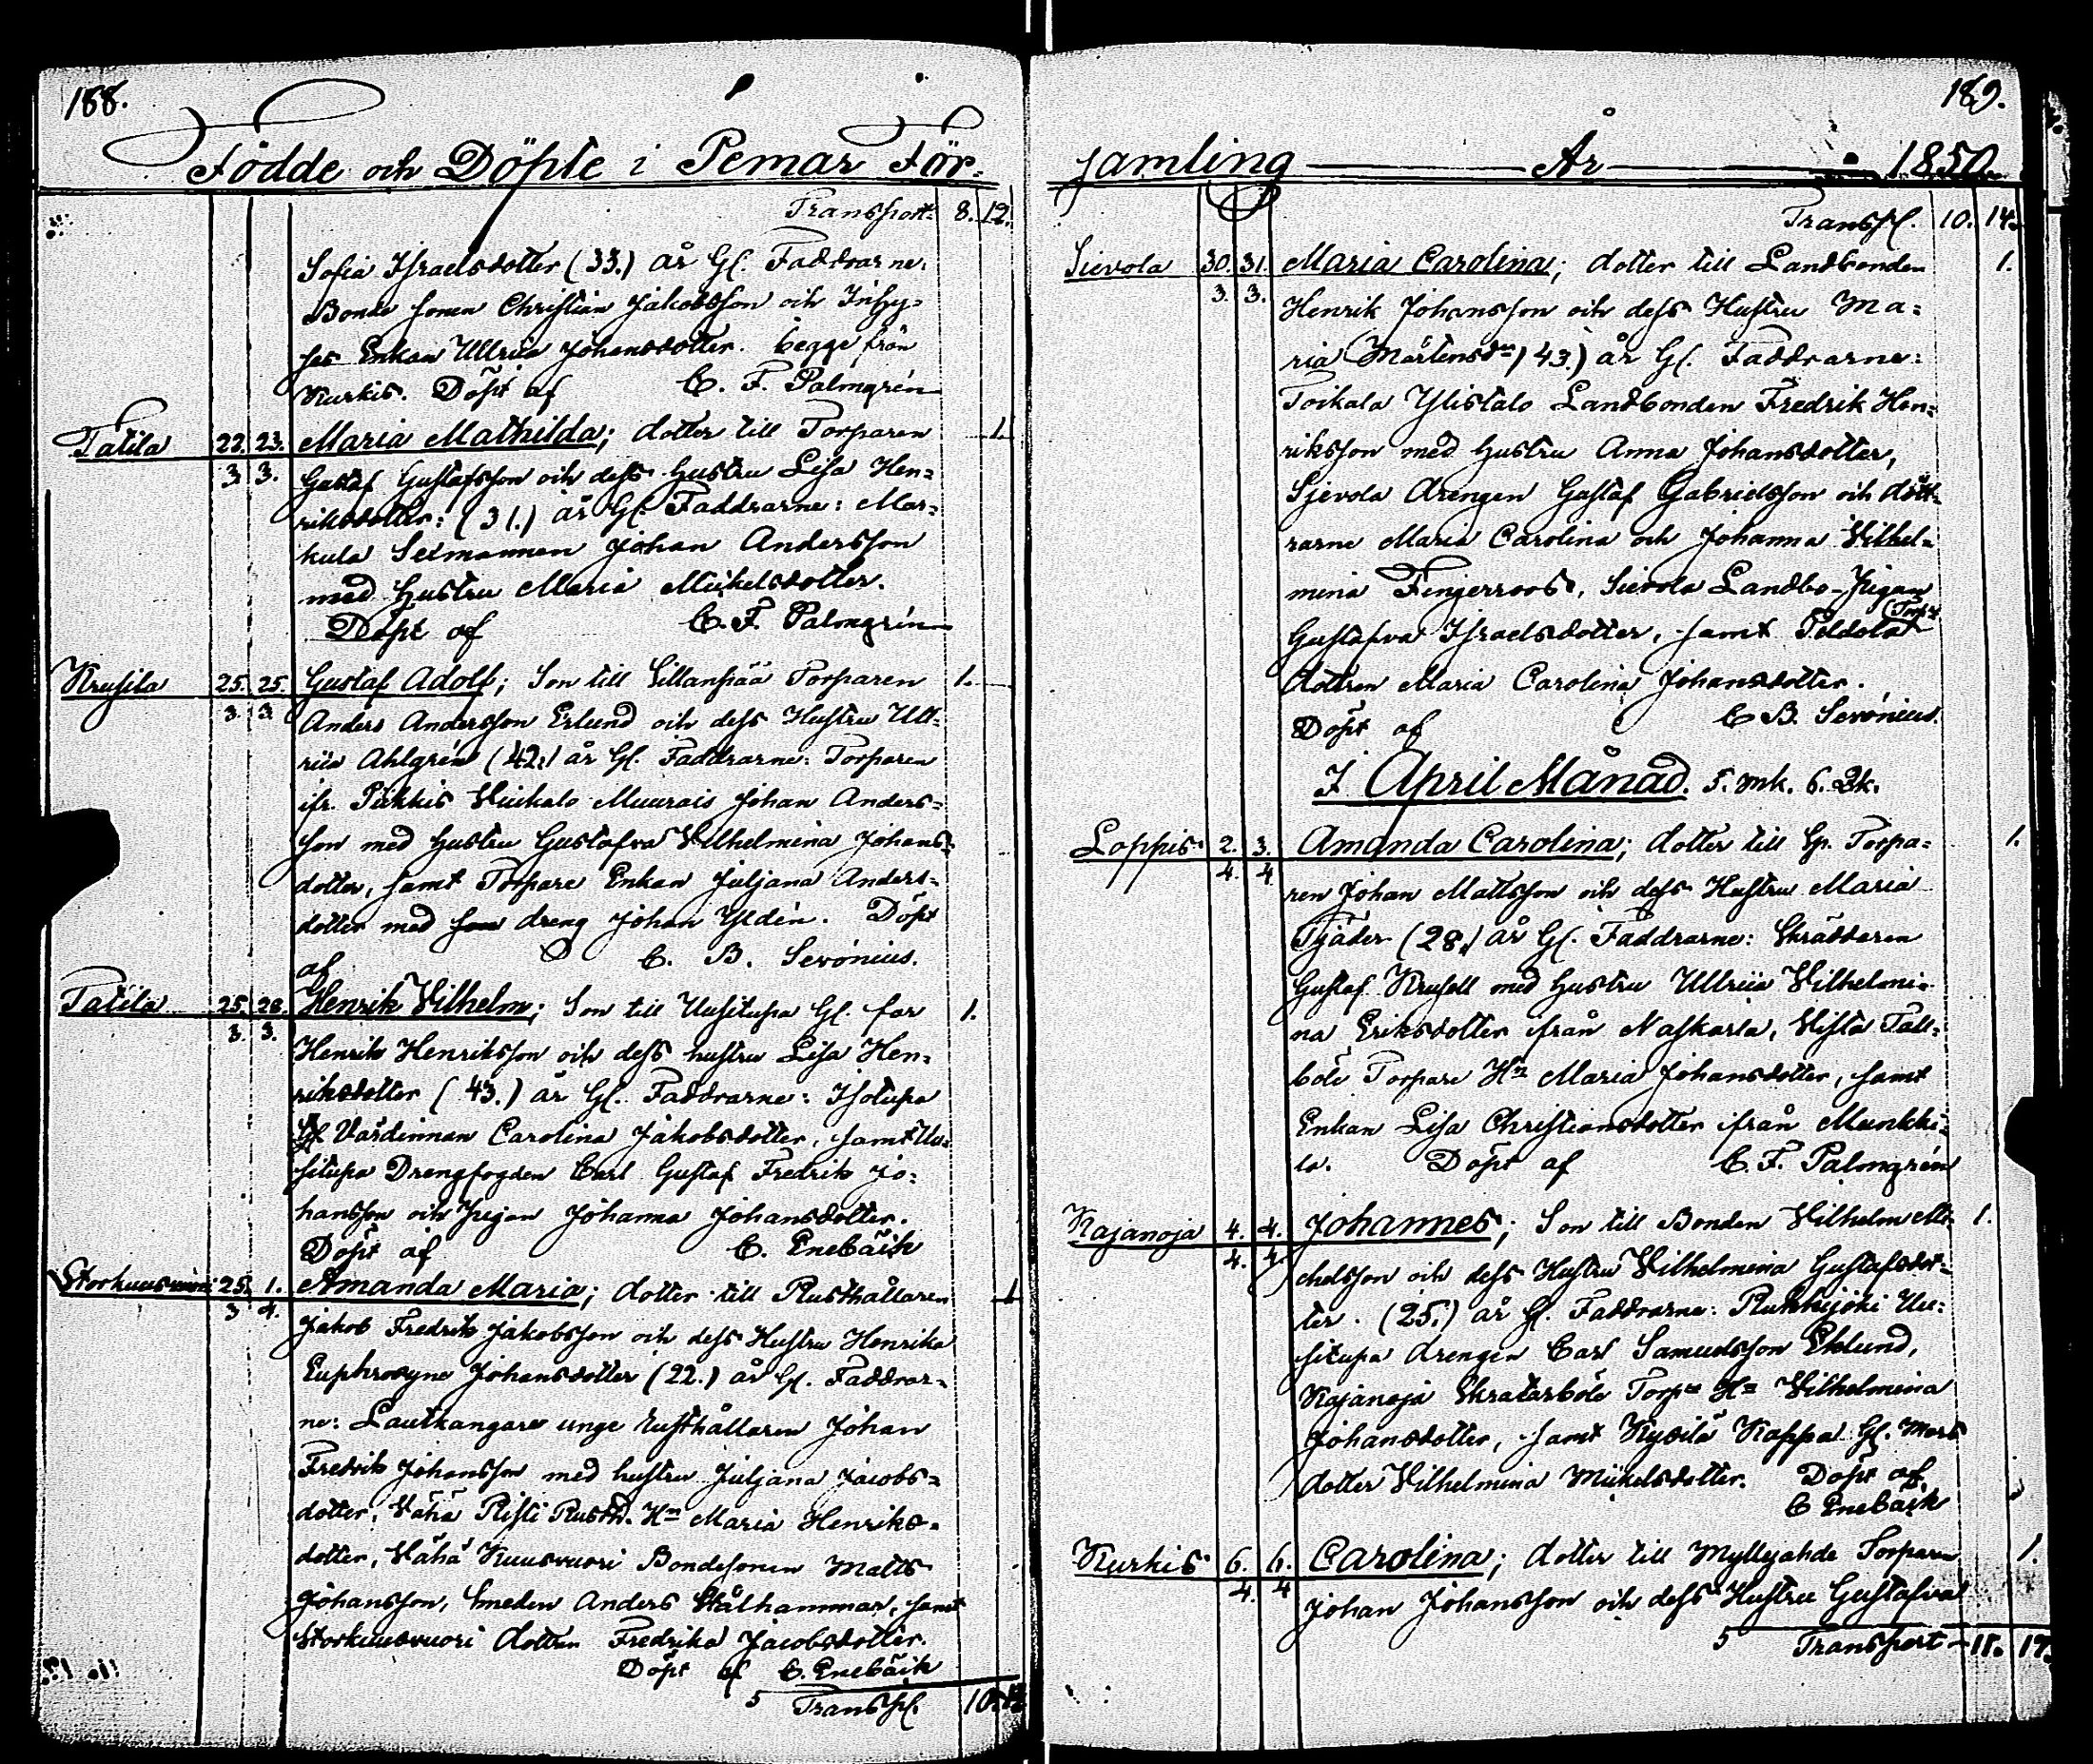 188.
Födde och Döpte i Pemar För-
Transport 8. 12.
Sofia Israelsdotter (33.) år Gl. Faddrarne:
Bonde sonen Christian Jakobsson och Inhy-
ses Enkan Ullrica Johansdotter. begge från
Kurkis. Döpt af C. F. Palmgrén
Tatila 22. 23. Maria Mathilda; dotter till Torparen 1.
3. 3. Gustaf Gustafsson och dess hustru Lisa Hen-
riksdotter: (31.) år Gl. Faddrarne: Mar-
kula Sexmannen Johan Andersson
med hustru Maria Mickelsdotter.
Döpt af C. F. Palmgrén
Krusila 25. 25. Gustaf Adolf; Son till Sillanpää Torparen 1.
3. 3. Anders Andersson Erlund och dess Hustru Ull-
rica Ahlgrén (42.) år Gl. Faddrarne: Torparen
ifr. Pikkis Johan Anders-
son med hustru Gustafva Wilhelmina Johans-
dotter, samt Torpare Enkan Juljana Anders-
dotter med son dreng Johan Yldén. Döpt
af C. B. Serónius.
Tatila 25. 26. Henrik Vilhelm; Son till Uusitupa Gl. far 1.
3. 3. Henrik Henriksson och dess hustru Lisa Hen-
riksdotter (43.) år Gl. Faddrarne: Isotupa
Värdinnan Carolina Jakobsdotter, samt Uu-
situpa Drengfogden Carl Gustaf Fredrik Jo-
hansson och Pigan Johanna Johansdotter.
Döpt af C. Enebäck
Storkuusvuori 25. 1. Amanda Maria; dotter till Rusthållaren 1.
3 4. Jakob Fredrik Jakobsson och dess Hustru Henrika
Euphrosyne Johansdotter (22.) år Gl. Faddrar-
ne: Lautkangare unge rusthållaren Johan
Fredrik Johansson med hustru Juljana Jacobs-
dotter, Vähä Risti Rusth. Hn Maria Henriks-
dotter, Vähä Kuusvuori Bondesonen Matts
Johansson, Smeden Anders Stålhammar, samt
Storkuusvuori dottern Fredrika Jacobsdotter.
Döpt af C. Enebäck
5 Transpt. 10. 14.
189.
samling År 1850.
Transpt. 10. 14.
Sievola 30. 31. Maria Carolina; dotter till Landbonden 1.
3. 3. Henrik Johansson och dess Hustru Ma-
ria Mårtensdr (43.) år Gl. Faddrarne:
Toikala Ylistalo Landbonden Fredrik Hen-
riksson med hustru Anna Johansdotter,
Sjevola drengen Gustaf Gabrielsson och dött-
rarne Maria Carolina och Johanna Wilhel-
mina Fingerroos, Sievola Landbo-Pigan
Gustafva Israelsdotter, samt Peldola Torp.
dottren Maria Carolina Johansdotter.
Döpt af C B. Serónius.
I April Månad. 5. mk. 6. Qk.
Loppis 2. 3. Amanda Carolina; dotter till Sp. Torpa- 1.
4. 4. ren Johan Mattsson och dess Hustru Maria
Tjäder (28.) år Gl. Faddrarne: Skräddaren
Gustaf Krusell med hustru Ullrica Vilhelmi-
na Eriksdotter från Naskarla, Vista Tall-
böle Torpare Hn Maria Johansdotter, samt
Enkan Lisa Christiansdotter ifrån Munkki-
la. Döpt af C. F. Palmgrén
Kajanoja 4. 4. Johannes; Son till Bonden Vilhelm Mi- 1.
4. 4. chelsson och dess Hustru Vilhelmina Gustafsdot-
ter. (25.) år Gl. Faddrarne: Rukkijoki Uu-
situpa drengen Carl Samuelsson Eklund,
Kajanoja Skratarböle Torpe Hn Vilhelmina
Johansdotter, samt Kysilä Kappa Gl. Mors
dotter Vilhelmina Mickelsdotter. Döpt af
C Enebäck
Kurkis 6. 6. Carolina; dotter till Myllyahde Torparen 1.
4. 4 Johan Johansson och dess Hustru Gustafva
5 Transport 11. 17.